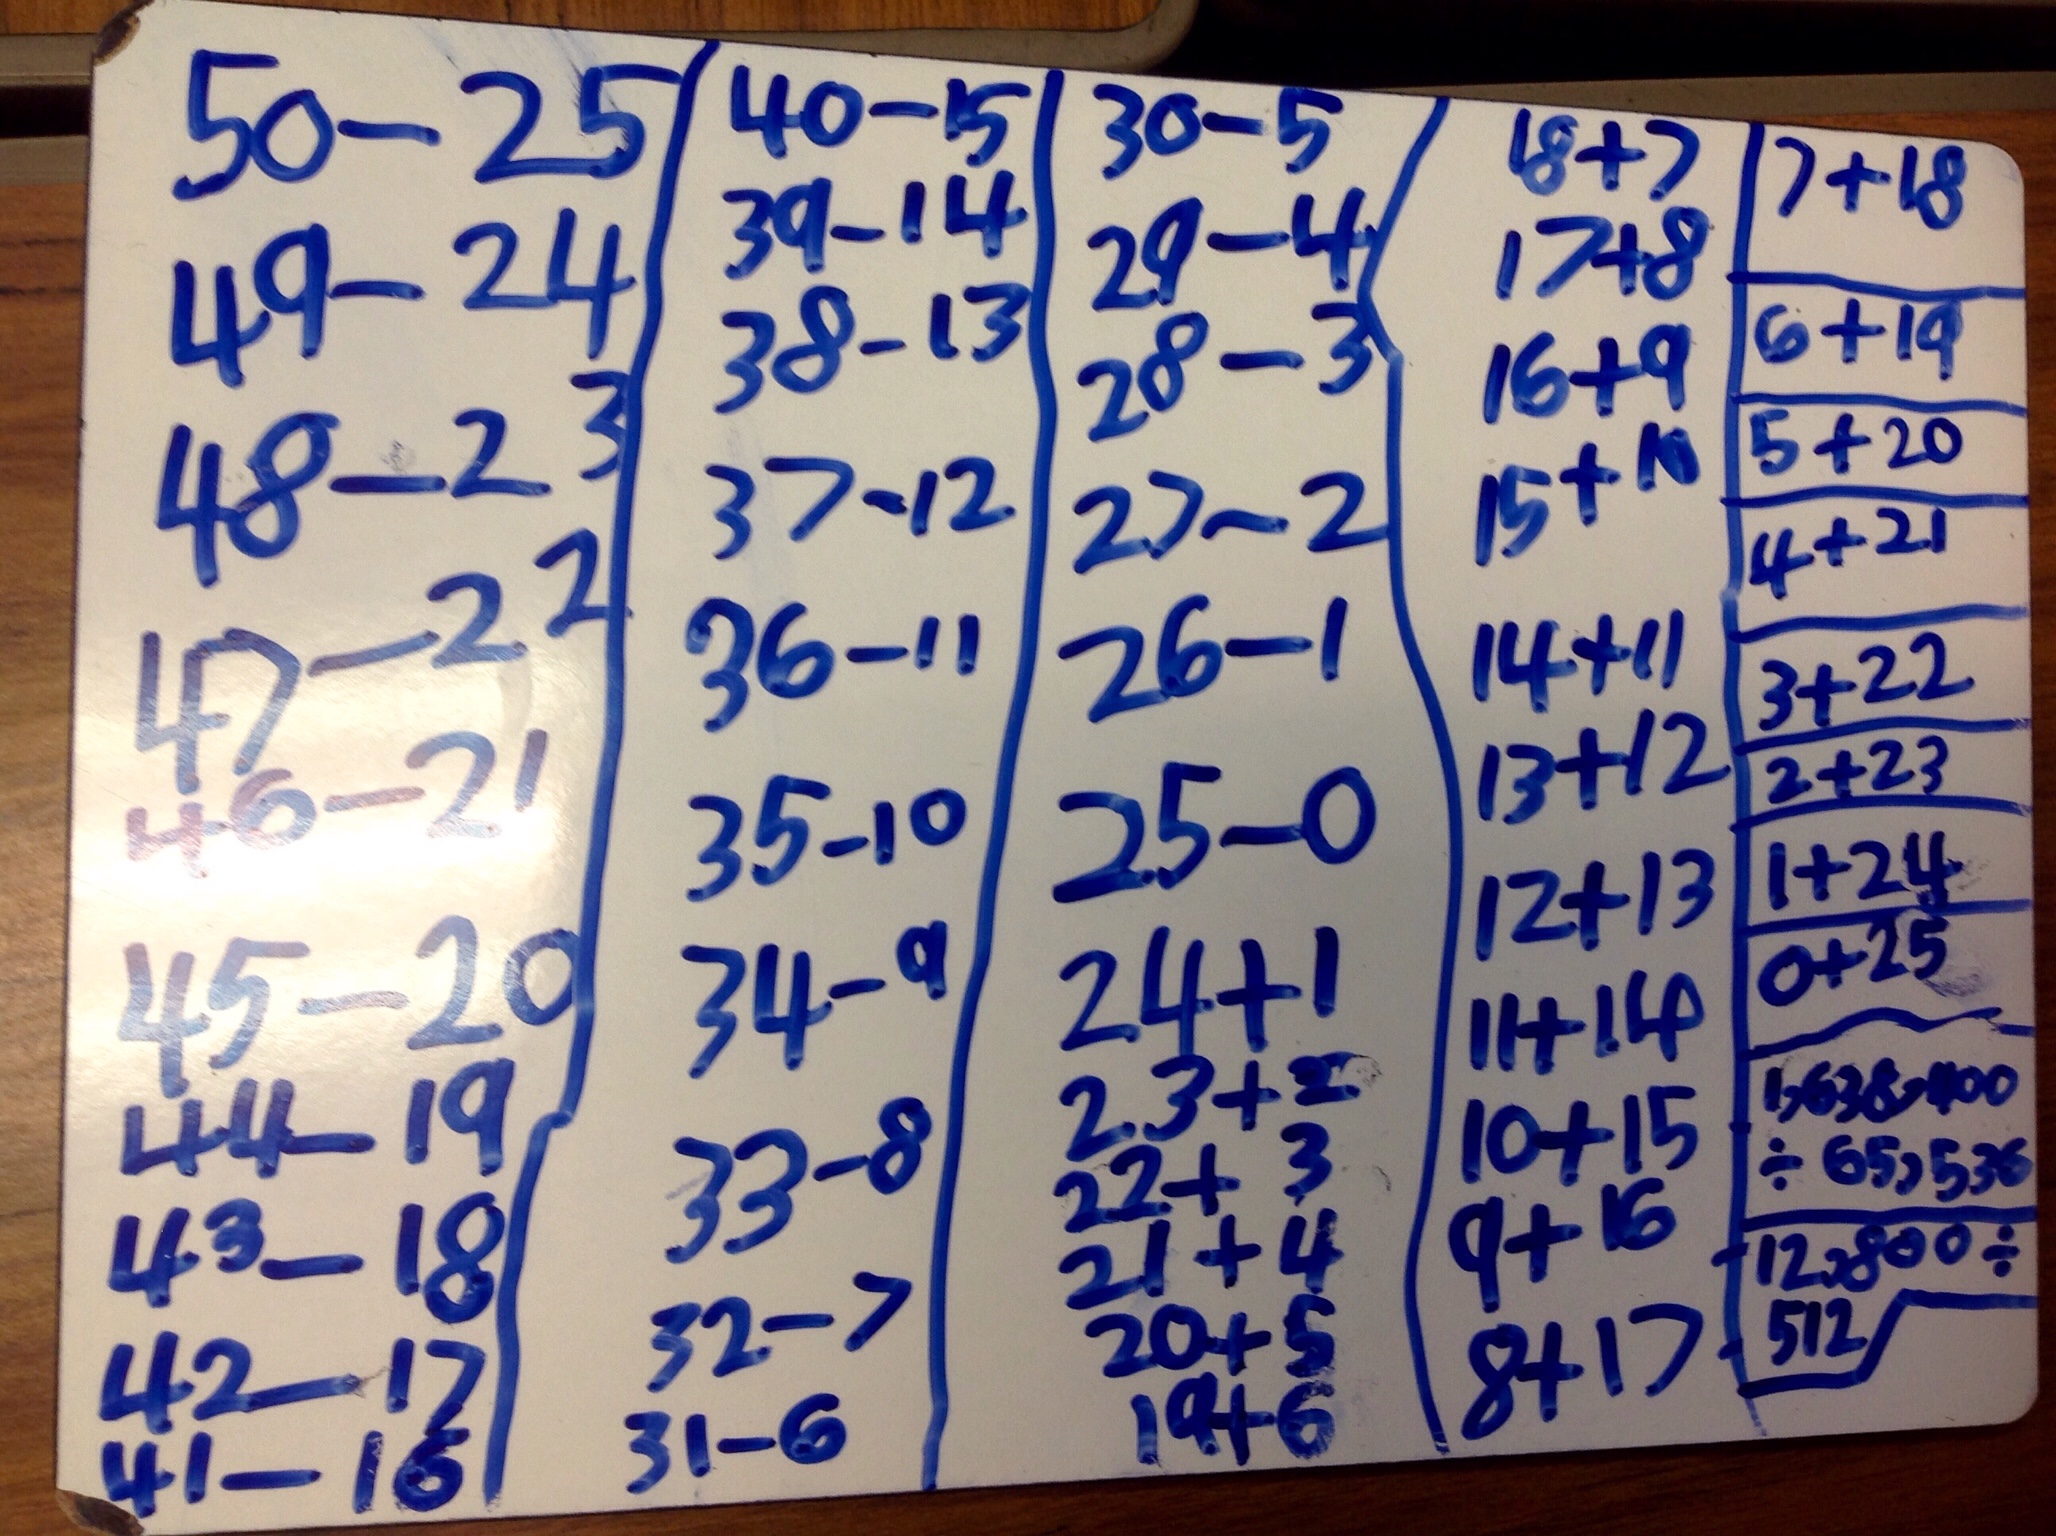 50-25
49-24
48-23
47-22
46-21
45-20
44-19
43-18
42-17
41-16
40-15
39-14
38-13
37-12
36-11
35-10
34-9
33-8
32-7
31-6
30-5
29-4
28-3
27-2
26-1
25-0
24+1
23+2
22+3
21+4
20+5
19+6
18+7
17+8
16+9
15+10
14+11
13+12
12+13
11+14
10+15
9+16
8+17
7+18
6+19
5+20
4+21
3+22
2+23
1+24
0+25
1,638,400
÷ 65,536
12,800÷
512